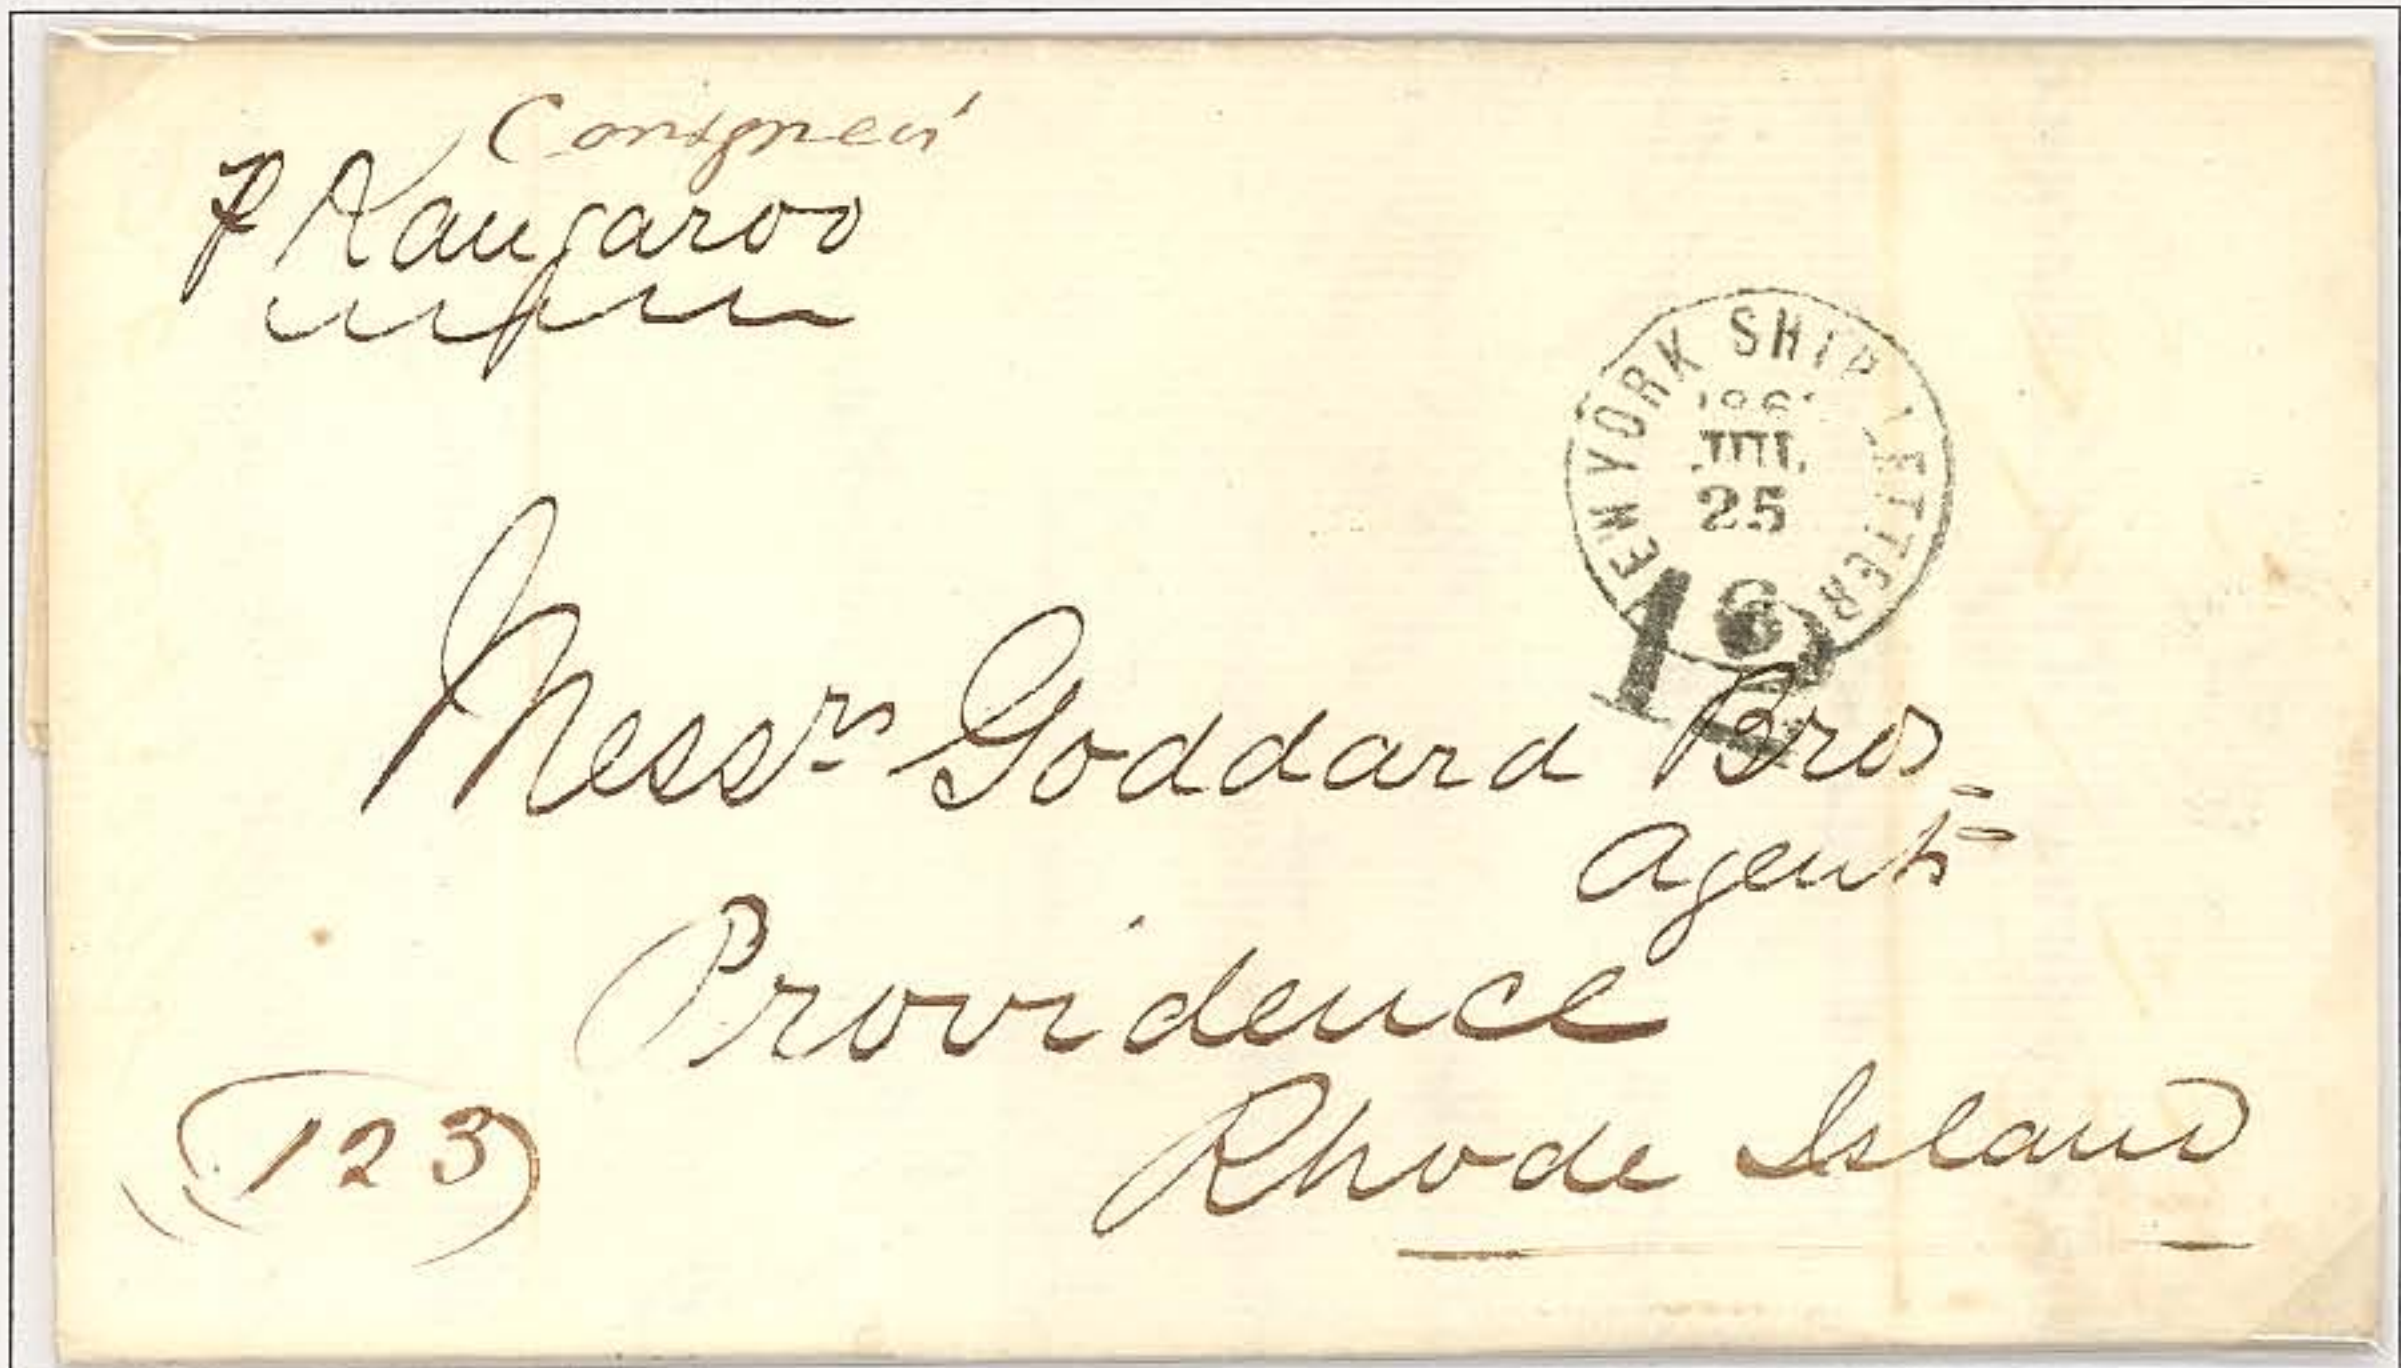 Consignees'
p Kangaroo
NEW YORK SHIP LETTER
JUL
25
6
12
Messrs Goddard Bros
Agents
Providence
Rhode Island
123